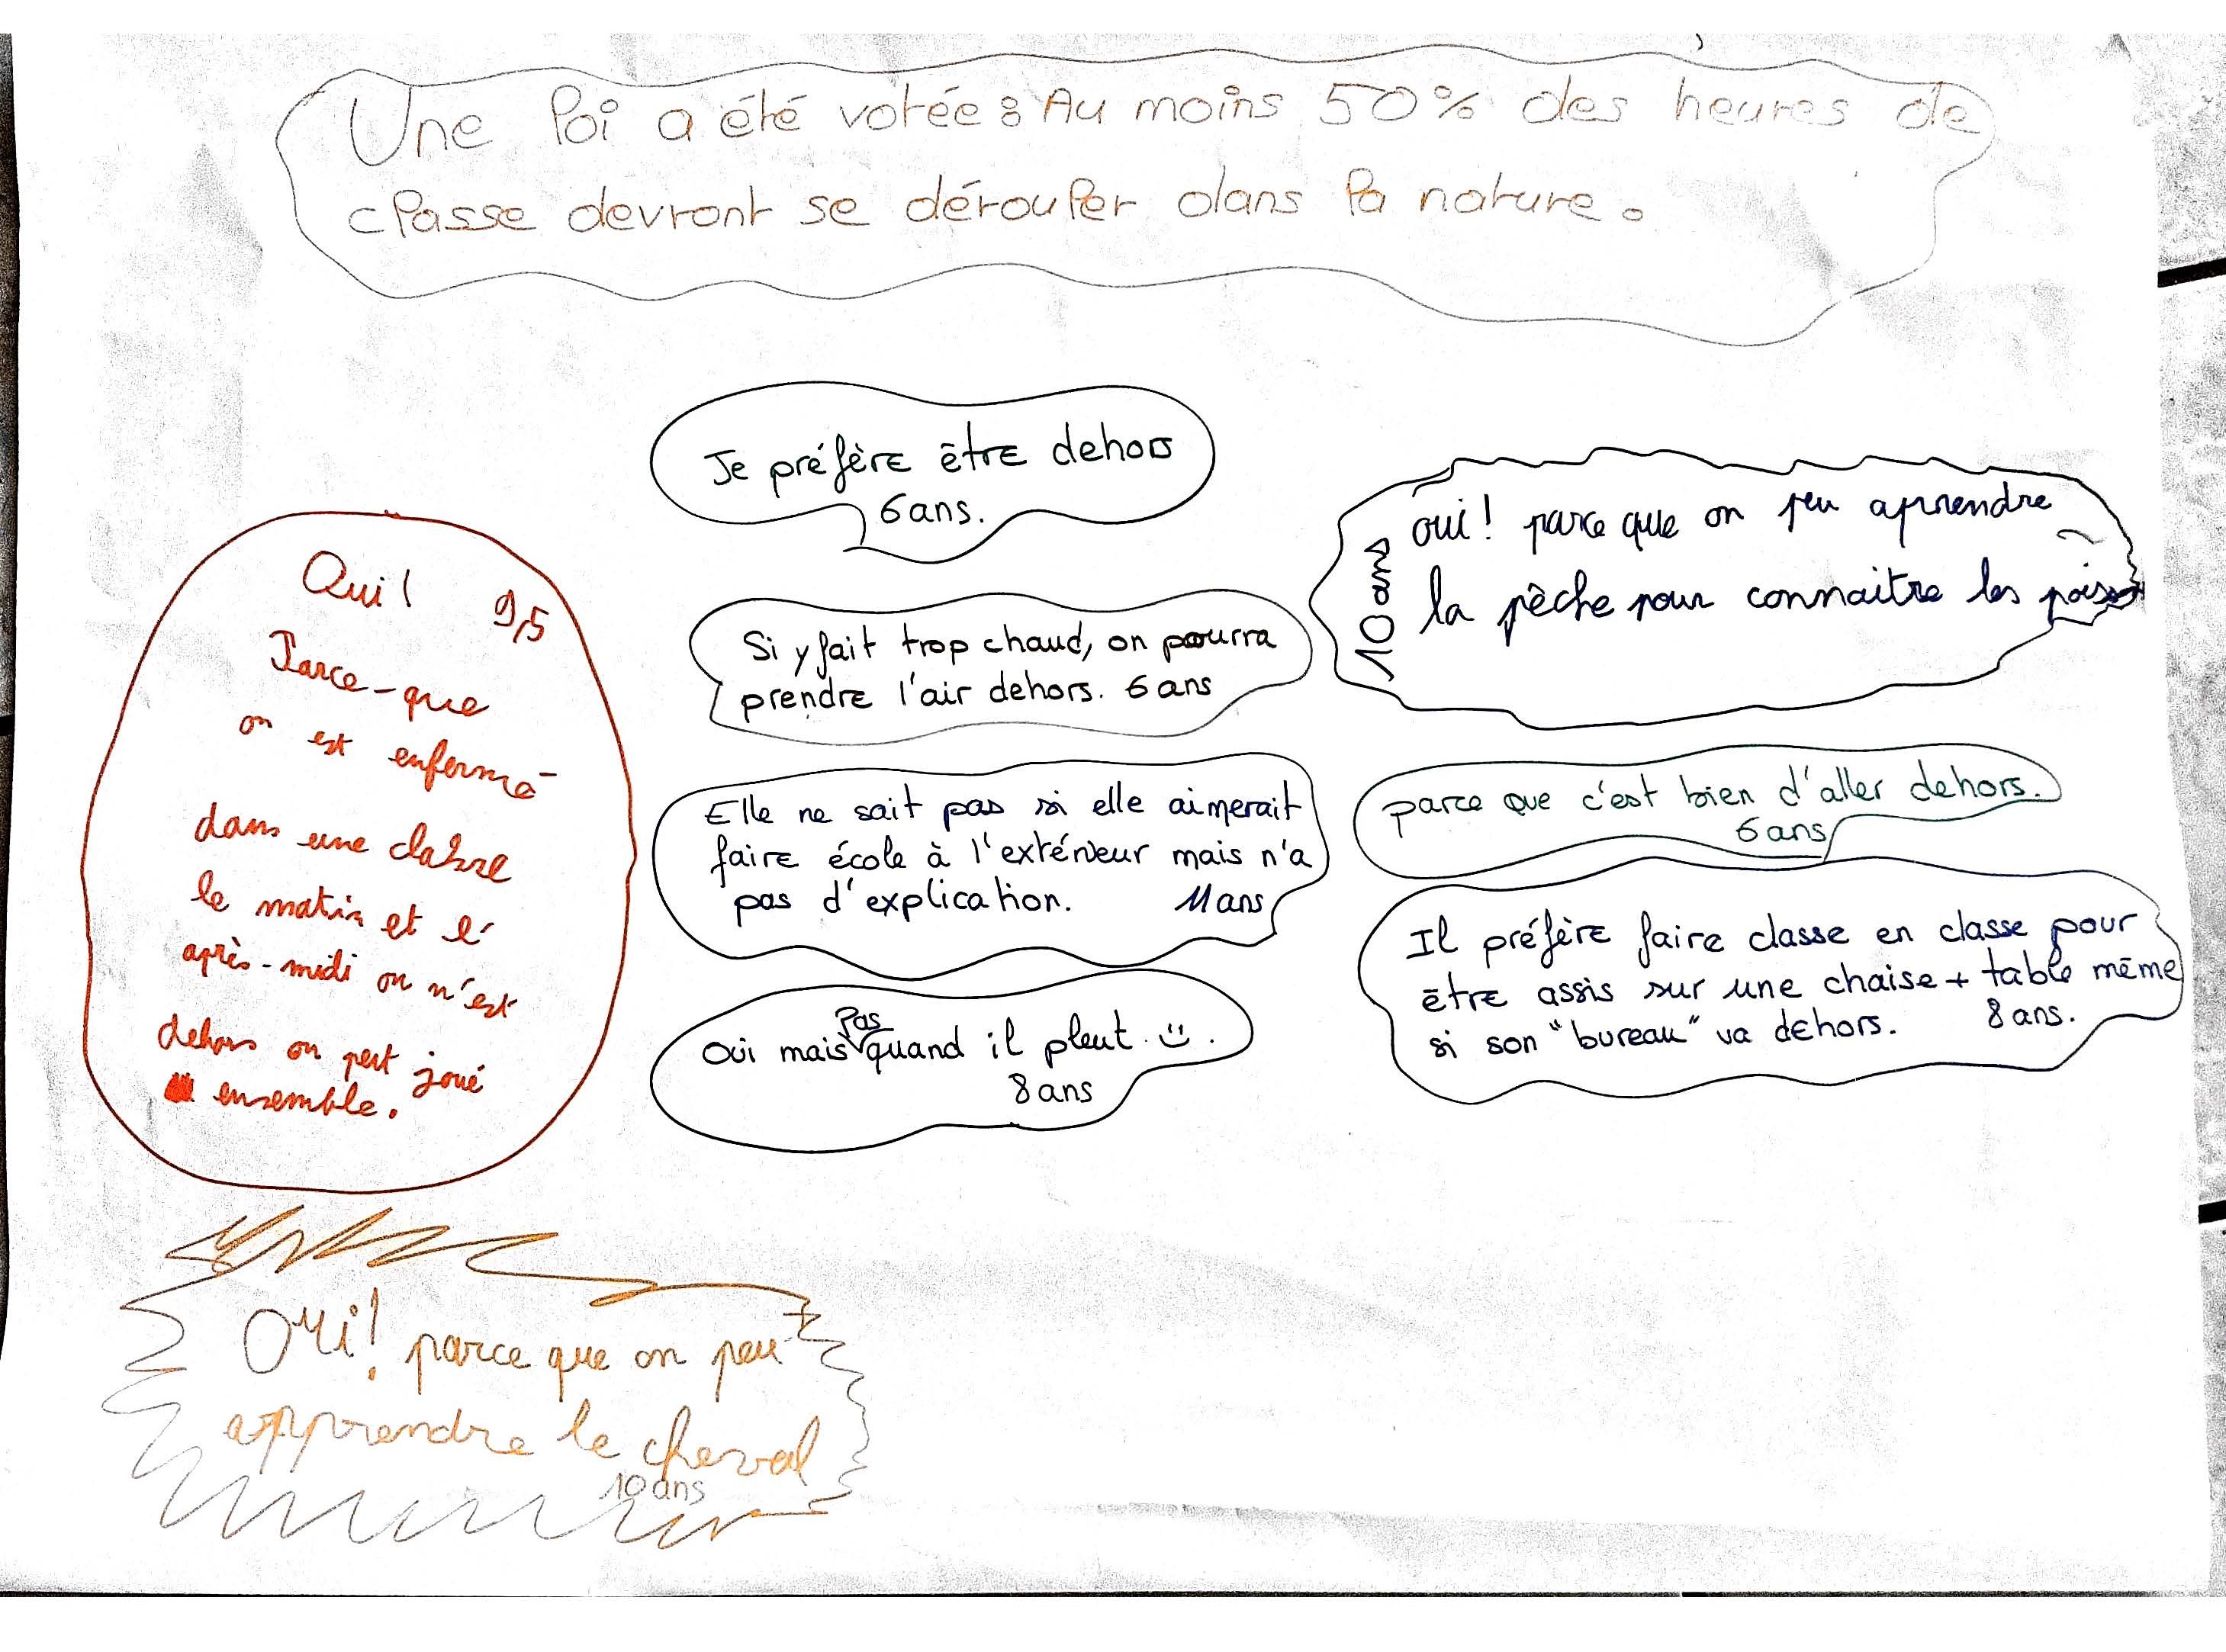 Une loi a été votée : Au moins 50% des heures de
classe devront se dérouler dans la nature.
Je préfère être dehors
6 ans.
Oui! 9,5
Parce-que
on est enfermé
dans une classe
le matin et l'
après-midi on n'est
dehors on peut joué
ensemble.
Si y fait trop chaud, on pourra
prendre l'air dehors. 6 ans
Elle ne sait pas si elle aimerait
faire école à l'extérieur mais n'a
pas d'explication. 11 ans
Oui mais pas quand il pleut :).
8 ans
10 ans
oui! parce que on peu aprendre
la pêche pour connaitre les
parce que c'est bien d'aller dehors.
6 ans
Il préfère faire classe en classe pour
être assis sur une chaise + table même
si son "bureau" va dehors. 8 ans.
Oui! parce que on peut
apprendre le cheval
10 ans